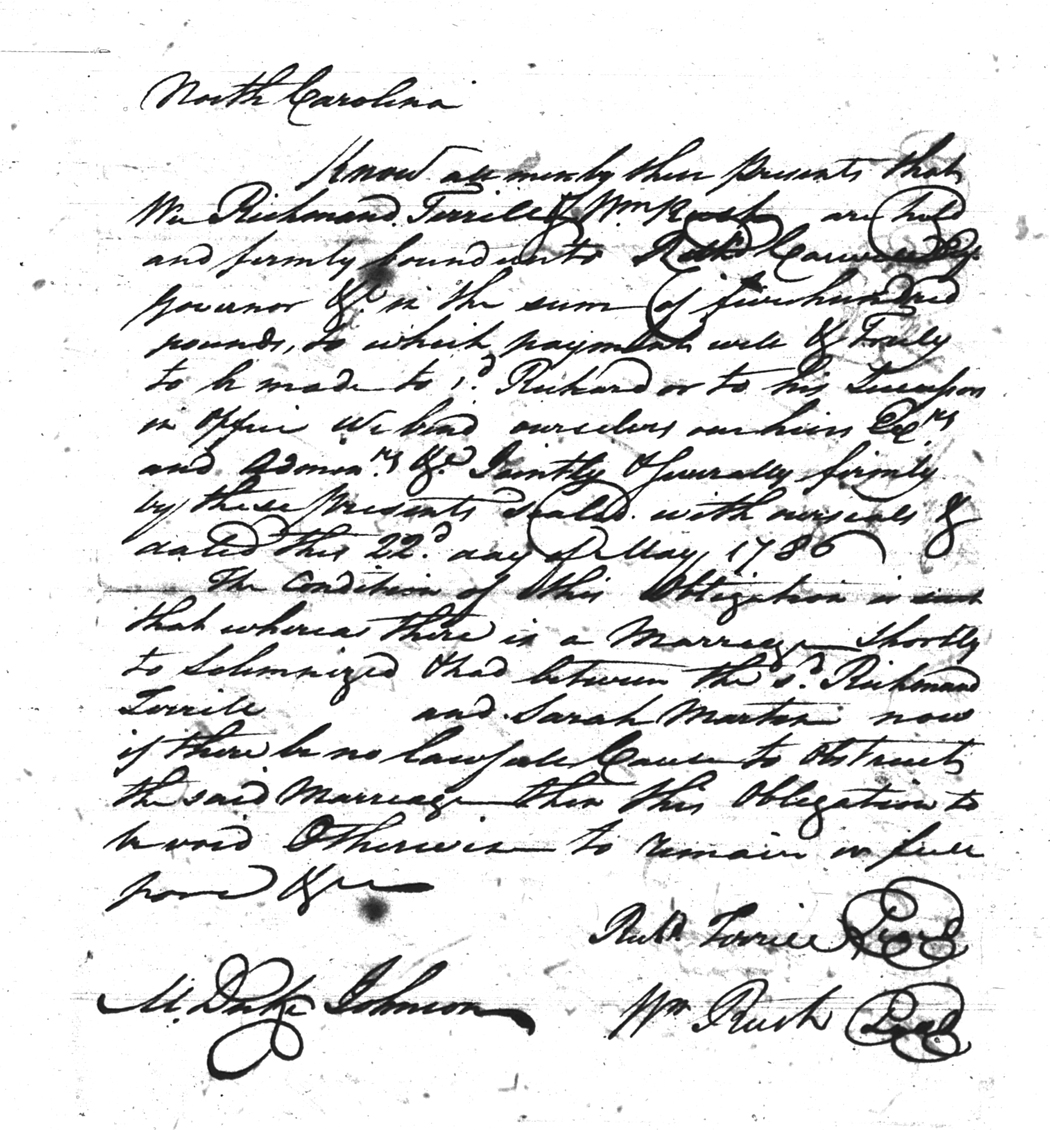 North Carolina
Know all men by these Presents that
We Richmond Terrille & Wm Rush are held
and firmly bound unto Richd Caswell Esqr
Governor &c in the sum of five hundred
pounds, to which payment well & Truly
to be made to sd Richard or to his Successors
in office We bind ourselves our heirs Exrs
and Admonrs &c Jointly & severally firmly
by these Presents Sealed with our seals &
dated this 22d day of May 1786
The Condition of this Obligation is such
that whereas there is a Marreage Shortly
to Solemnized & had between the sd Richmond
Terrile and Sarah Martin now
if there be no lawfull Cause to Obstruct
the said Marreage then this Obligation to
be void Otherwise to remain in full
force &c
Richd Terrile Seal
M. Duke Johnson Wm Rush Seal